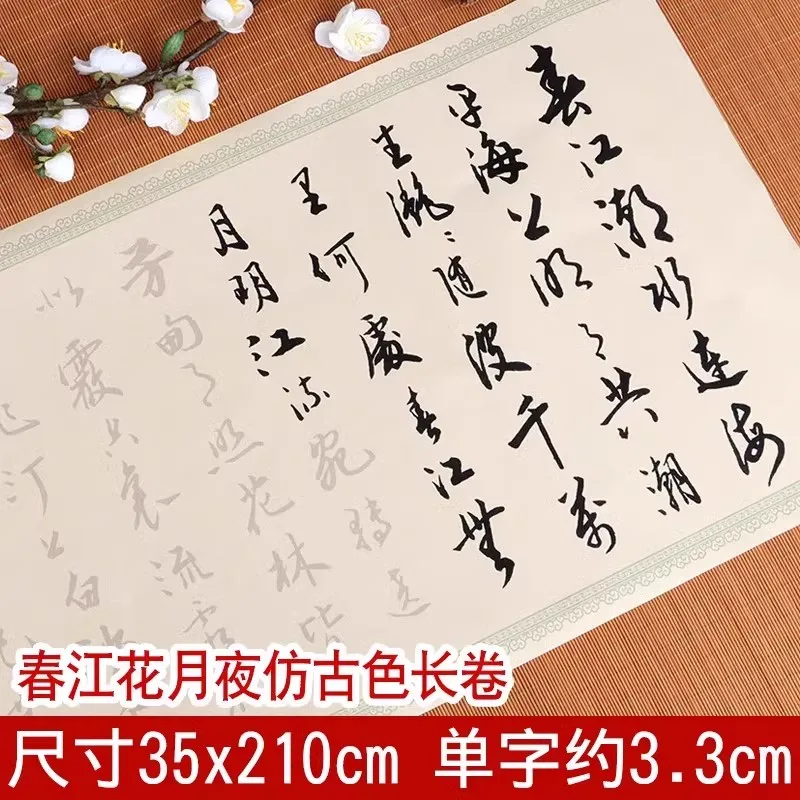 春江潮水連海
平海上明月共潮
生灧〻随波千萬
里何處春江無
月明江流宛轉遶
芳甸月照花林皆
似霰空裏流霜
汀上白沙
春江花月夜仿古色长卷
尺寸35x210cm 单字约3.3cm